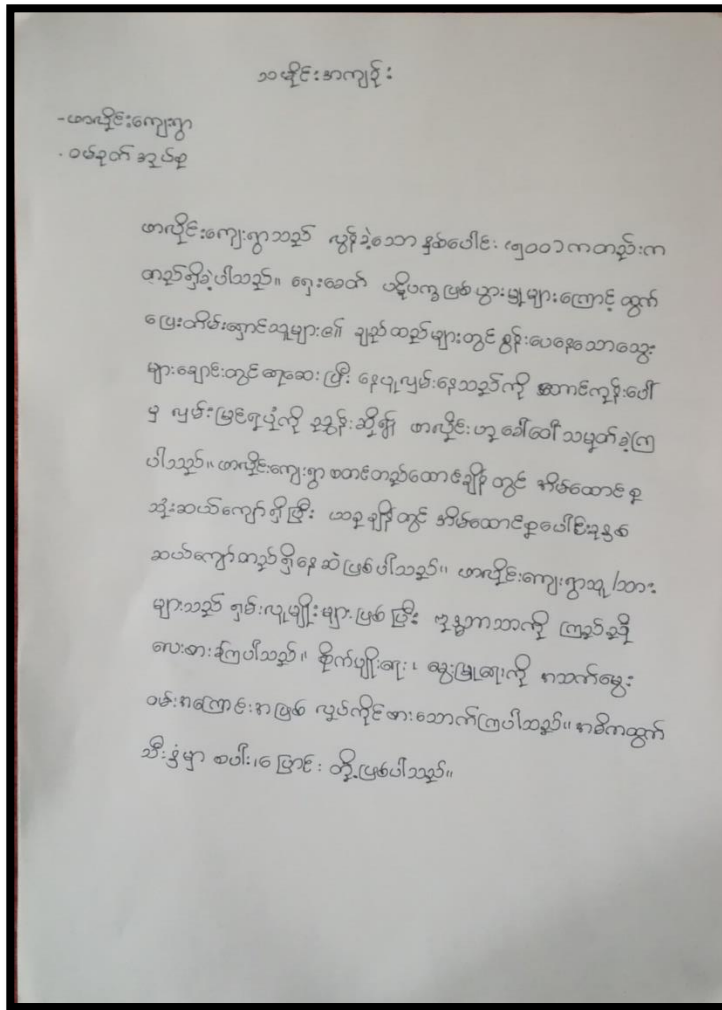 သမိုင်းအကျဉ်း
-ဟာလှိုင်းကျေးရွာ
-ဝမ်ခုတ် အုပ်စု
ဟာလှိုင်းကျေးရွာသည် လွန်ခဲ့သော နှစ်ပေါင်း (၅၀၀) ကတည်းက
တည်ရှိခဲ့ပါသည်။ ရှေးခေတ် ပဋိပက္ခဖြစ်ပွားမှုများကြောင့် ထွက်
ပြေးတိမ်းရှောင်သူများ၏ ချည်ထည်များတွင် စွန်းပေနေသောသွေး
များချောင်းတွင်ရေဆေးပြီး နေပူလှမ်းနေသည်ကို တောင်ကုန်းပေါ်
မှ လှမ်းမြင်ရပုံကို ညွှန်းဆို၍ ဟာလှိုင်းဟု ခေါ်ဝေါ်သမုတ်ခဲ့ကြ
ပါသည်။ ဟာလှိုင်းကျေးရွာ စတင်တည်ထောင်ချိန်တွင် အိမ်ထောင်စု
သုံးဆယ်ကျော်ရှိပြီး ယခုချိန်တွင် အိမ်ထောင်စုပေါင်းခုနှစ်
ဆယ်ကျော်တည်ရှိနေဆဲဖြစ်ပါသည်။ ဟာလှိုင်းကျေးရွာသူ/သား
များသည် ရှမ်းလူမျိုးများဖြစ်ပြီး ဗုဒ္ဓဘာသာကို ကြည်ညို
လေးစားကြပါသည်။ စိုက်ပျိုးရေး၊ မွေးမြူရေးကို အသက်မွေး
ဝမ်းအကြောင်းအဖြစ် လုပ်ကိုင်စားသောက်ကြပါသည်။ အဓိကထွက်
သီးနှံမှာ စပါး၊ပြောင်း တို့ဖြစ်ပါသည်။